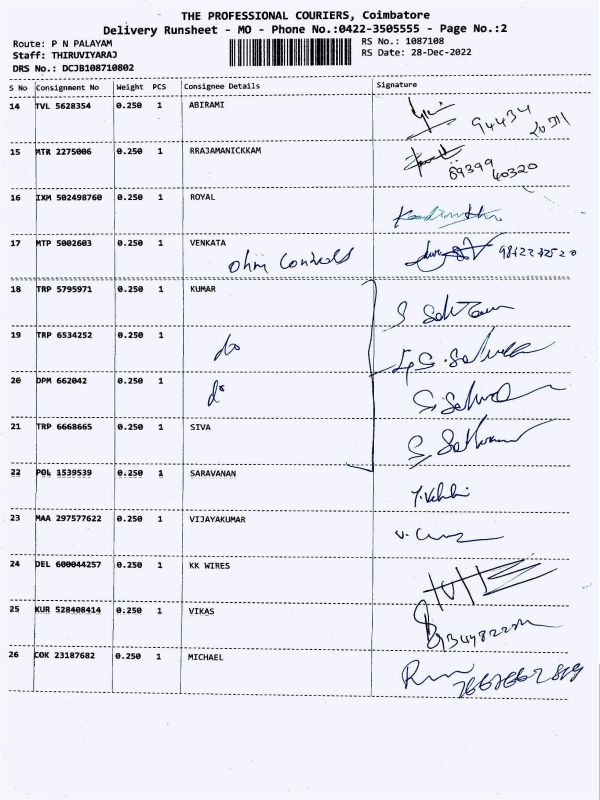 THE PROFESSIONAL COURIERS, Coimbatore
Delivery Runsheet - MO - Phone No.:0422-3505555 - Page No.:2
Route: P N PALAYAM
RS No.: 1087108
Staff: THIRUVIYARAJ
RS Date: 28-Dec-2022
DRS No.: DCJB108710802
S No Consignment No Weight PCS Consignee Details Signature
14 TVL 5628354 0.250 1 ABIRAMI
94434
15 MTR 2275006 0.250 1 RRAJAMANICKKAM
89399
40320
16 IXM 502498760 0.250 1 ROYAL
17 MTP 5002603 0.250 1 VENKATA
Ohm Controls
18 TRP 5795971 0.250 1 KUMAR
19 TRP 6534252 0.250 1
do
20 DPM 662042 0.250 1
do
21 TRP 6668665 0.250 1 SIVA
22 POL 1539539 0.250 1 SARAVANAN
23 MAA 297577622 0.250 1 VIJAYAKUMAR
24 DEL 600044257 0.250 1 KK WIRES
25 KUR 528408414 0.250 1 VIKAS
26 COK 23187682 0.250 1 MICHAEL